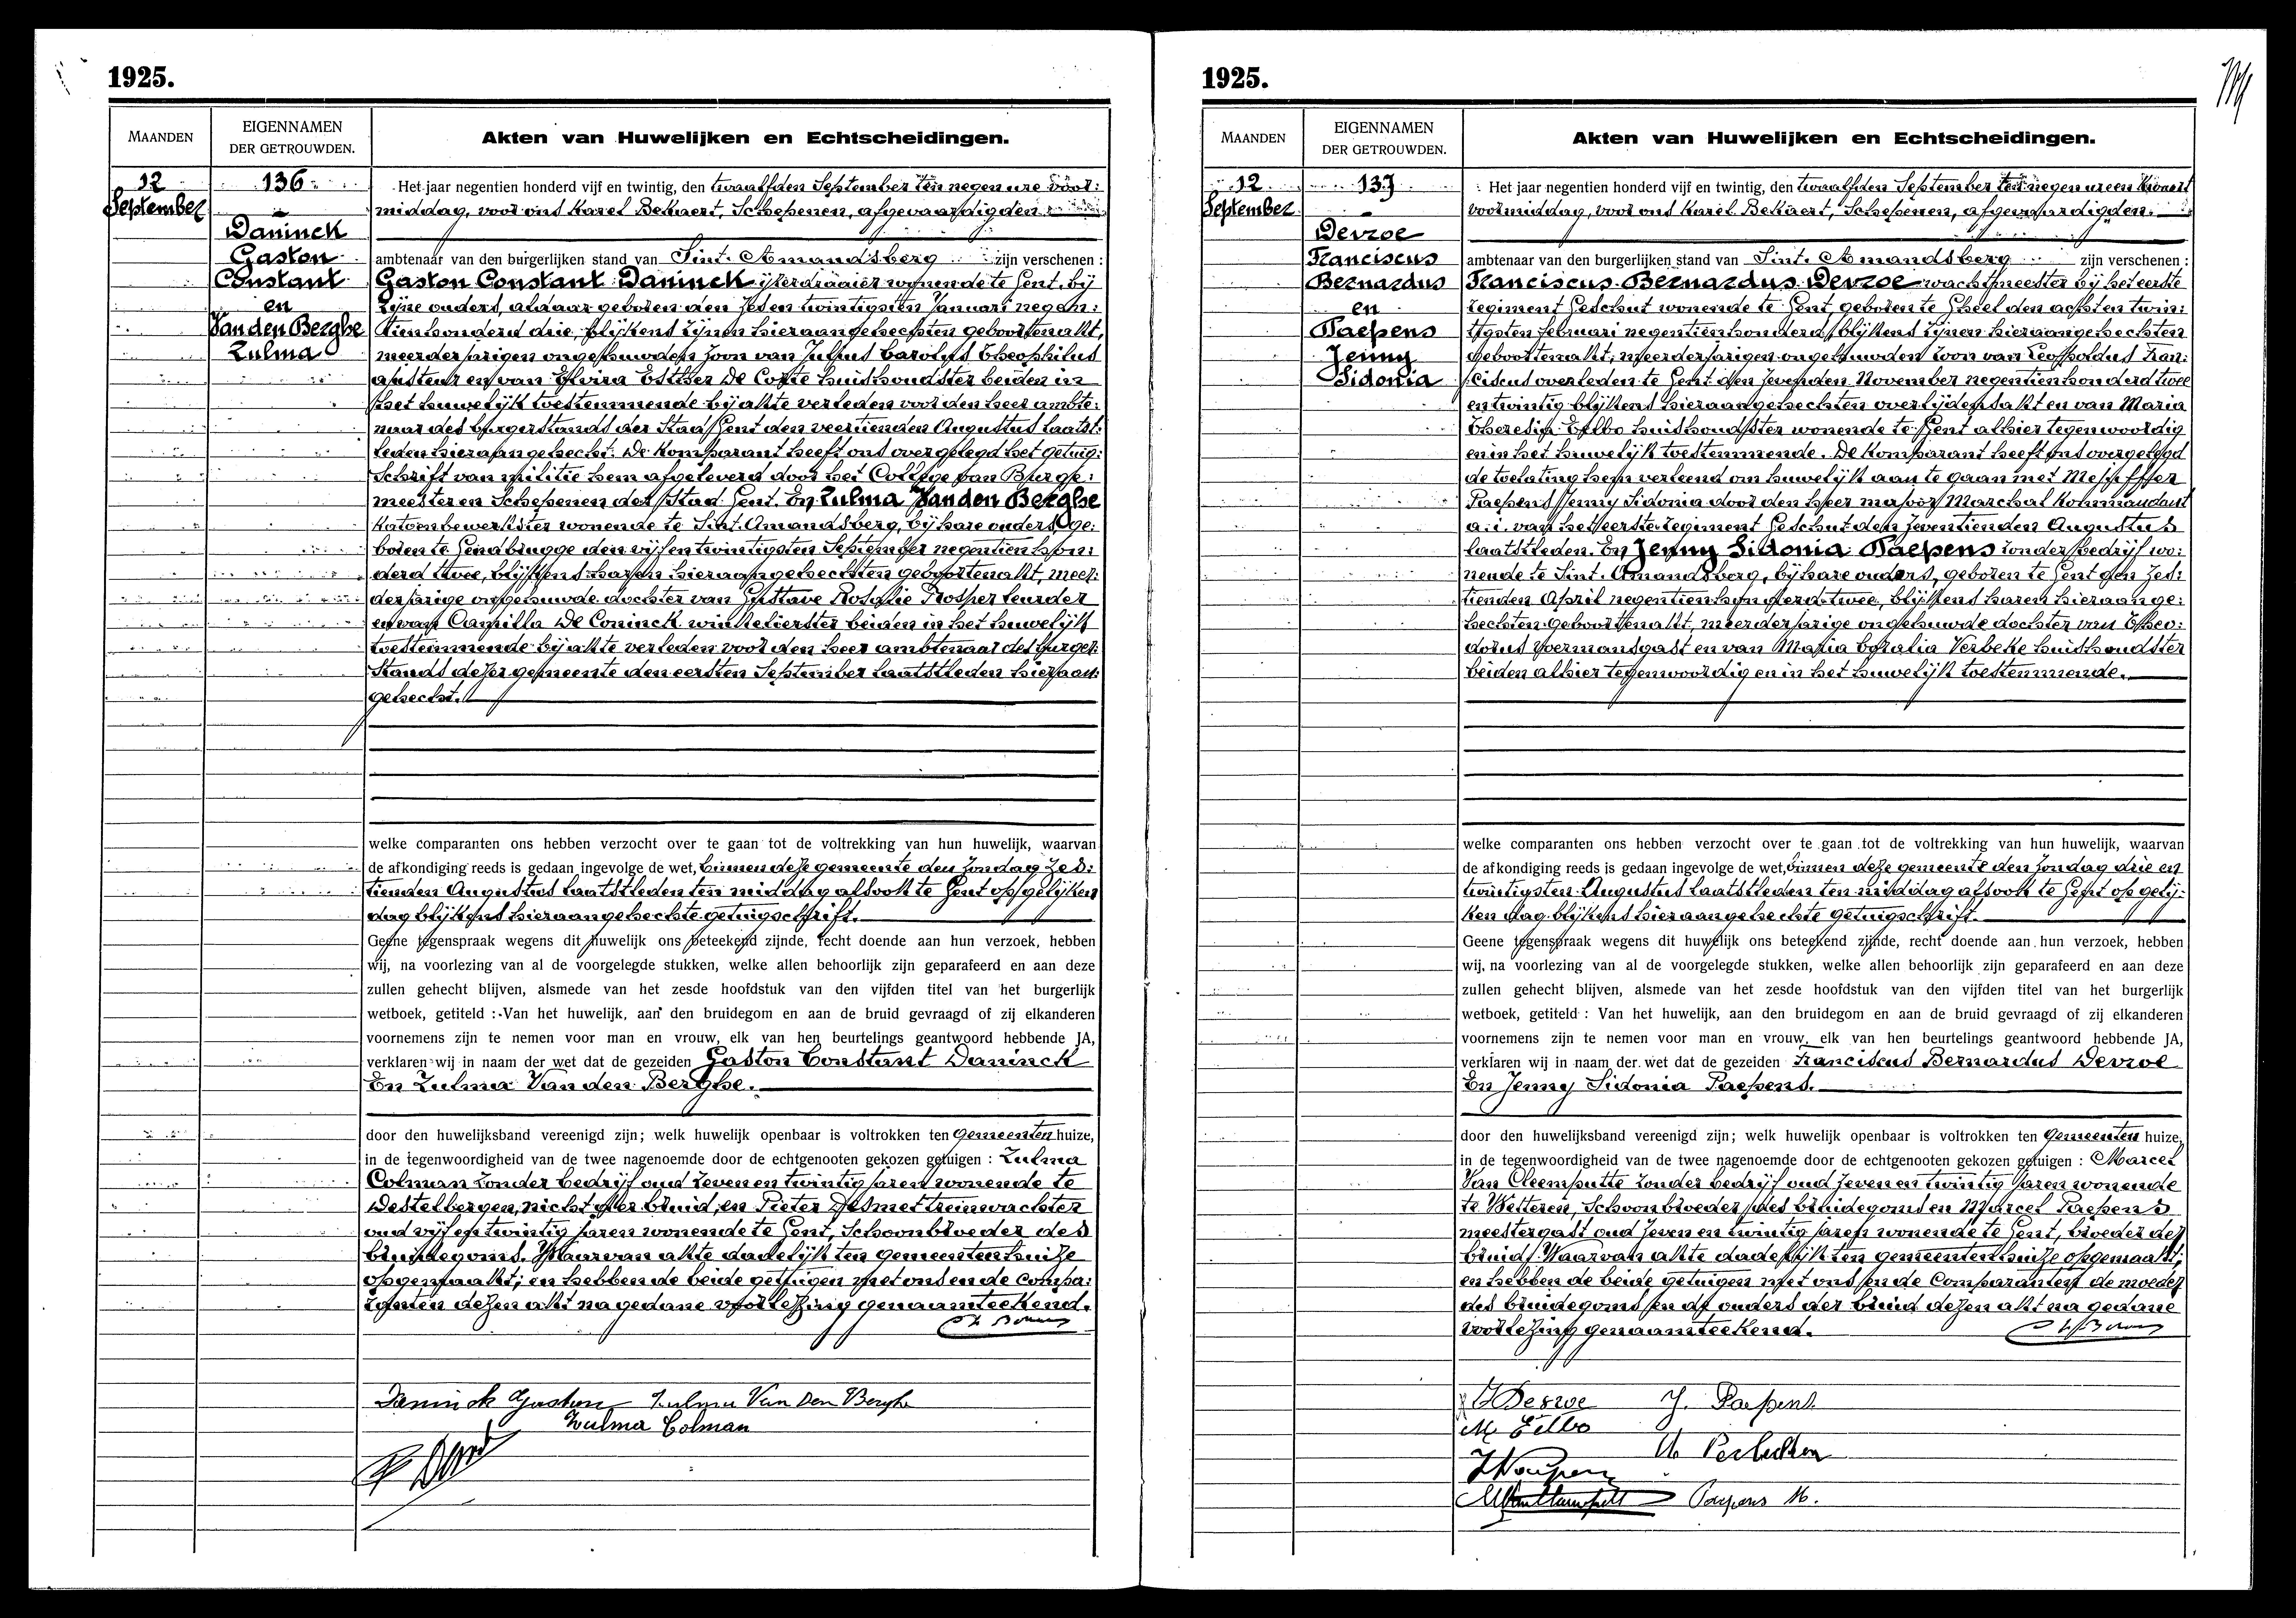 1925.
MAANDEN
EIGENNAMEN
DER GETROUWDEN.
Akten van Huwelijken en Echtscheidingen.
12
September
136
Daninck
Gaston
Constant
en
Van den Berghe
Zulma
Het jaar negentien honderd vijf en twintig, den twaalfden September ten negen ure voor:
middag, voor ons Karel Bekaert, Schepenen, afgevaardigden
ambtenaar van den burgerlijken stand van Sint. Amandsberg zijn verschenen :
Gaston Constant Daninck ijzerdraaier wonende te Gent, bij
zijne ouders, aldaar geboren den zes en twintigsten Januari negen:
tienhonderd drie, blijkens zijnen hieraangehechten geboortenakt,
meerderjarigen ongehuwden zoon van Julius Carolus Theophilus
en van Elvira Esther De Corte huishoudster beiden in
het huwelijk toestemmende bij akte verleden voor den heer ambte:
naar des burgerstands der Stad Gent den veertienden Augustus laatst:
leden hieraangehecht. De komparant heeft ons overgelegd het getuig:
schrift van militie hem afgeleverd door het College van Burge:
meester en Schepenen der Stad Gent. En Zulma Van den Berghe
katoenbewerkster wonende te Sint. Amandsberg, bij hare ouders ge:
boren te Gendbrugge den vijf en twintigsten September negentien hon:
derd twee, blijkens haren hieraangehechten geboortenakt, meer:
derjarige ongehuwde dochter van Gustave Rosalie Prosper leurder
en van Camilla De Coninck winkelierster beiden in het huwelijk
toestemmende bij akte verleden voor den heer ambtenaar des burger:
stands dezer gemeente den eersten September laatstleden hieraan:
gehecht.
welke comparanten ons hebben verzocht over te gaan tot de voltrekking van hun huwelijk, waarvan
de afkondiging reeds is gedaan ingevolge de wet, binnen deze gemeente den Zondag zes:
tienden Augustus laatstleden ten middag alsook te Gent op gelijken
dag blijkens hieraangehechte getuigschrift.
Geene tegenspraak wegens dit huwelijk ons beteekend zijnde, recht doende aan hun verzoek, hebben
wij, na voorlezing van al de voorgelegde stukken, welke allen behoorlijk zijn geparafeerd en aan deze
zullen gehecht blijven, alsmede van het zesde hoofdstuk van den vijfden titel van het burgerlijk
wetboek, getiteld : Van het huwelijk, aan den bruidegom en aan de bruid gevraagd of zij elkanderen
voornemens zijn te nemen voor man en vrouw, elk van hen beurtelings geantwoord hebbende JA,
verklaren wij in naam der wet dat de gezeiden Gaston Constant Daninck
En Zulma Van den Berghe.
door den huwelijksband vereenigd zijn; welk huwelijk openbaar is voltrokken ten Gemeenten huize,
in de tegenwoordigheid van de twee nagenoemde door de echtgenooten gekozen getuigen : Zulma
Colman zonder bedrijf oud zeven en twintig jaren wonende te
Destelbergen, nicht der bruid, en Pieter Desmet treinwachter
oud vijf en twintig jaren wonende te Gent, Schoonbroeder des
bruidegoms. Waarvan akte dadelijk ten gemeentenhuize
opgemaakt; en hebben de beide getuigen met ons en de compa:
ranten dezen akt na gedane voorlezing genaamteekend.
Daninck Gaston Zulma Van Den Berghe
Zulma Colman
1925.
MAANDEN
EIGENNAMEN
DER GETROUWDEN.
Akten van Huwelijken en Echtscheidingen.
12
September
137
Devroe
Franciscus
Bernardus
en
Paepens
Jenny
Sidonia
Het jaar negentien honderd vijf en twintig, den twaalfden September ten negen ure en kwart
voormiddag, voor ons Karel Bekaert, Schepenen, afgevaardigden
ambtenaar van den burgerlijken stand van Sint. Amandsberg zijn verschenen :
Franciscus Bernardus Devroe wachtmeester bij het eerste
regiment Geschut wonende te Gent, geboren te Gheel den achten twin:
tigsten Februari negentienhonderd, blijkens zijnen hieraangehechten
geboortenakt, meerderjarigen ongehuwden zoon van Leopoldus Fran:
ciscus overleden te Gent den zevenden November negentienhonderd twee
en twintig blijkens hieraangehechten overlijdensakt en van Maria
Theresia Elbo huishoudster wonende te Gent alhier tegenwoordig
en in het huwelijk toestemmende. De komparant heeft ons overgelegd
de toelating hem verleend om huwelijk aan te gaan met Mejuffer
Paepens Jenny Sidonia door den heer majoor Marchal kommandant
a. i. van het eerste regiment Geschut den zeventienden Augustus
laatstleden. En Jenny Sidonia Paepens zonder bedrijf wo:
nende te Sint. Amandsberg, bij hare ouders, geboren te Gent den zes:
tienden April negentienhonderd twee, blijkens haren hieraange:
hechten geboortenakt, meerderjarige ongehuwde dochter van Theo:
dorus en van Maria Verbeke huishoudster
beiden alhier tegenwoordig en in het huwelijk toestemmende.
welke comparanten ons hebben verzocht over te gaan tot de voltrekking van hun huwelijk, waarvan
de afkondiging reeds is gedaan ingevolge de wet, binnen deze gemeente den Zondag drie en
twintigsten Augustus laatstleden ten middag alsook te Gent op gelij:
ken dag blijkens hieraangehechte getuigschrift.
Geene tegenspraak wegens dit huwelijk ons beteekend zijnde, recht doende aan hun verzoek, hebben
wij, na voorlezing van al de voorgelegde stukken, welke allen behoorlijk zijn geparafeerd en aan deze
zullen gehecht blijven, alsmede van het zesde hoofdstuk van den vijfden titel van het burgerlijk
wetboek, getiteld : Van het huwelijk, aan den bruidegom en aan de bruid gevraagd of zij elkanderen
voornemens zijn te nemen voor man en vrouw, elk van hen beurtelings geantwoord hebbende JA,
verklaren wij in naam der wet dat de gezeiden Franciscus Bernardus Devroe
En Jenny Sidonia Paepens.
door den huwelijksband vereenigd zijn; welk huwelijk openbaar is voltrokken ten Gemeenten huize,
in de tegenwoordigheid van de twee nagenoemde door de echtgenooten gekozen getuigen : Marcel
Van Cleemputte zonder bedrijf oud zeven en twintig jaren wonende
te Wetteren, Schoonbroeder des bruidegoms en Marcel Paepens
meestergast oud zeven en twintig jaren wonende te Gent, broeder der
bruid. Waarvan akte dadelijk ten gemeentenhuize opgemaakt;
en hebben de beide getuigen met ons en de Comparanten de moeder
des bruidegoms en de ouders der bruid dezen akt na gedane
voorlezing genaamteekend.
Devroe J. Paepens
M Elbo
Paepens M.